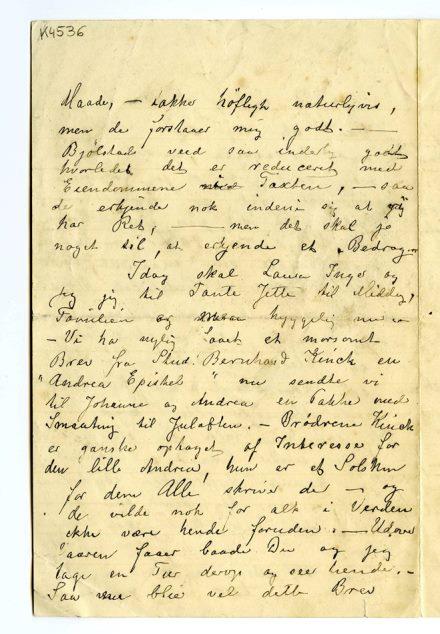 K4536
Maade, — takke höfligh naturligvis,
men de forstaaer mig godt. —
Bjölstads veed saa inderlig godt
hvorledes det er reduceret med
Eiendommene Taxten, — saa
de erkjende nok indeni sig at jeg
har Ret, — men det skal jo
noget til, at erkjende et Bedrag
Idag skal Laura Inger og
jeg til Tante Jette til Middag,
Familien og hyggelig
— Vi ha nylig faaet et morsomt
Brev fra Stud. Bernhard Kinck en
"Andrea Epistel" nu sendte vi
til Johanne og Andrea en Pakke med
Smaating til Juleaften. — Brødrene Kinck
er ganske optaget af Interesse for
den lille Andrea, hun er et Solskin
for dem Alle skrive de — og
de vilde nok for alt i Verden
ikke være hende foruden. — Udover
Vaaren faaer baade Du og jeg
tage en Tur derop og see hende. —
Saa blir vel dette Brev